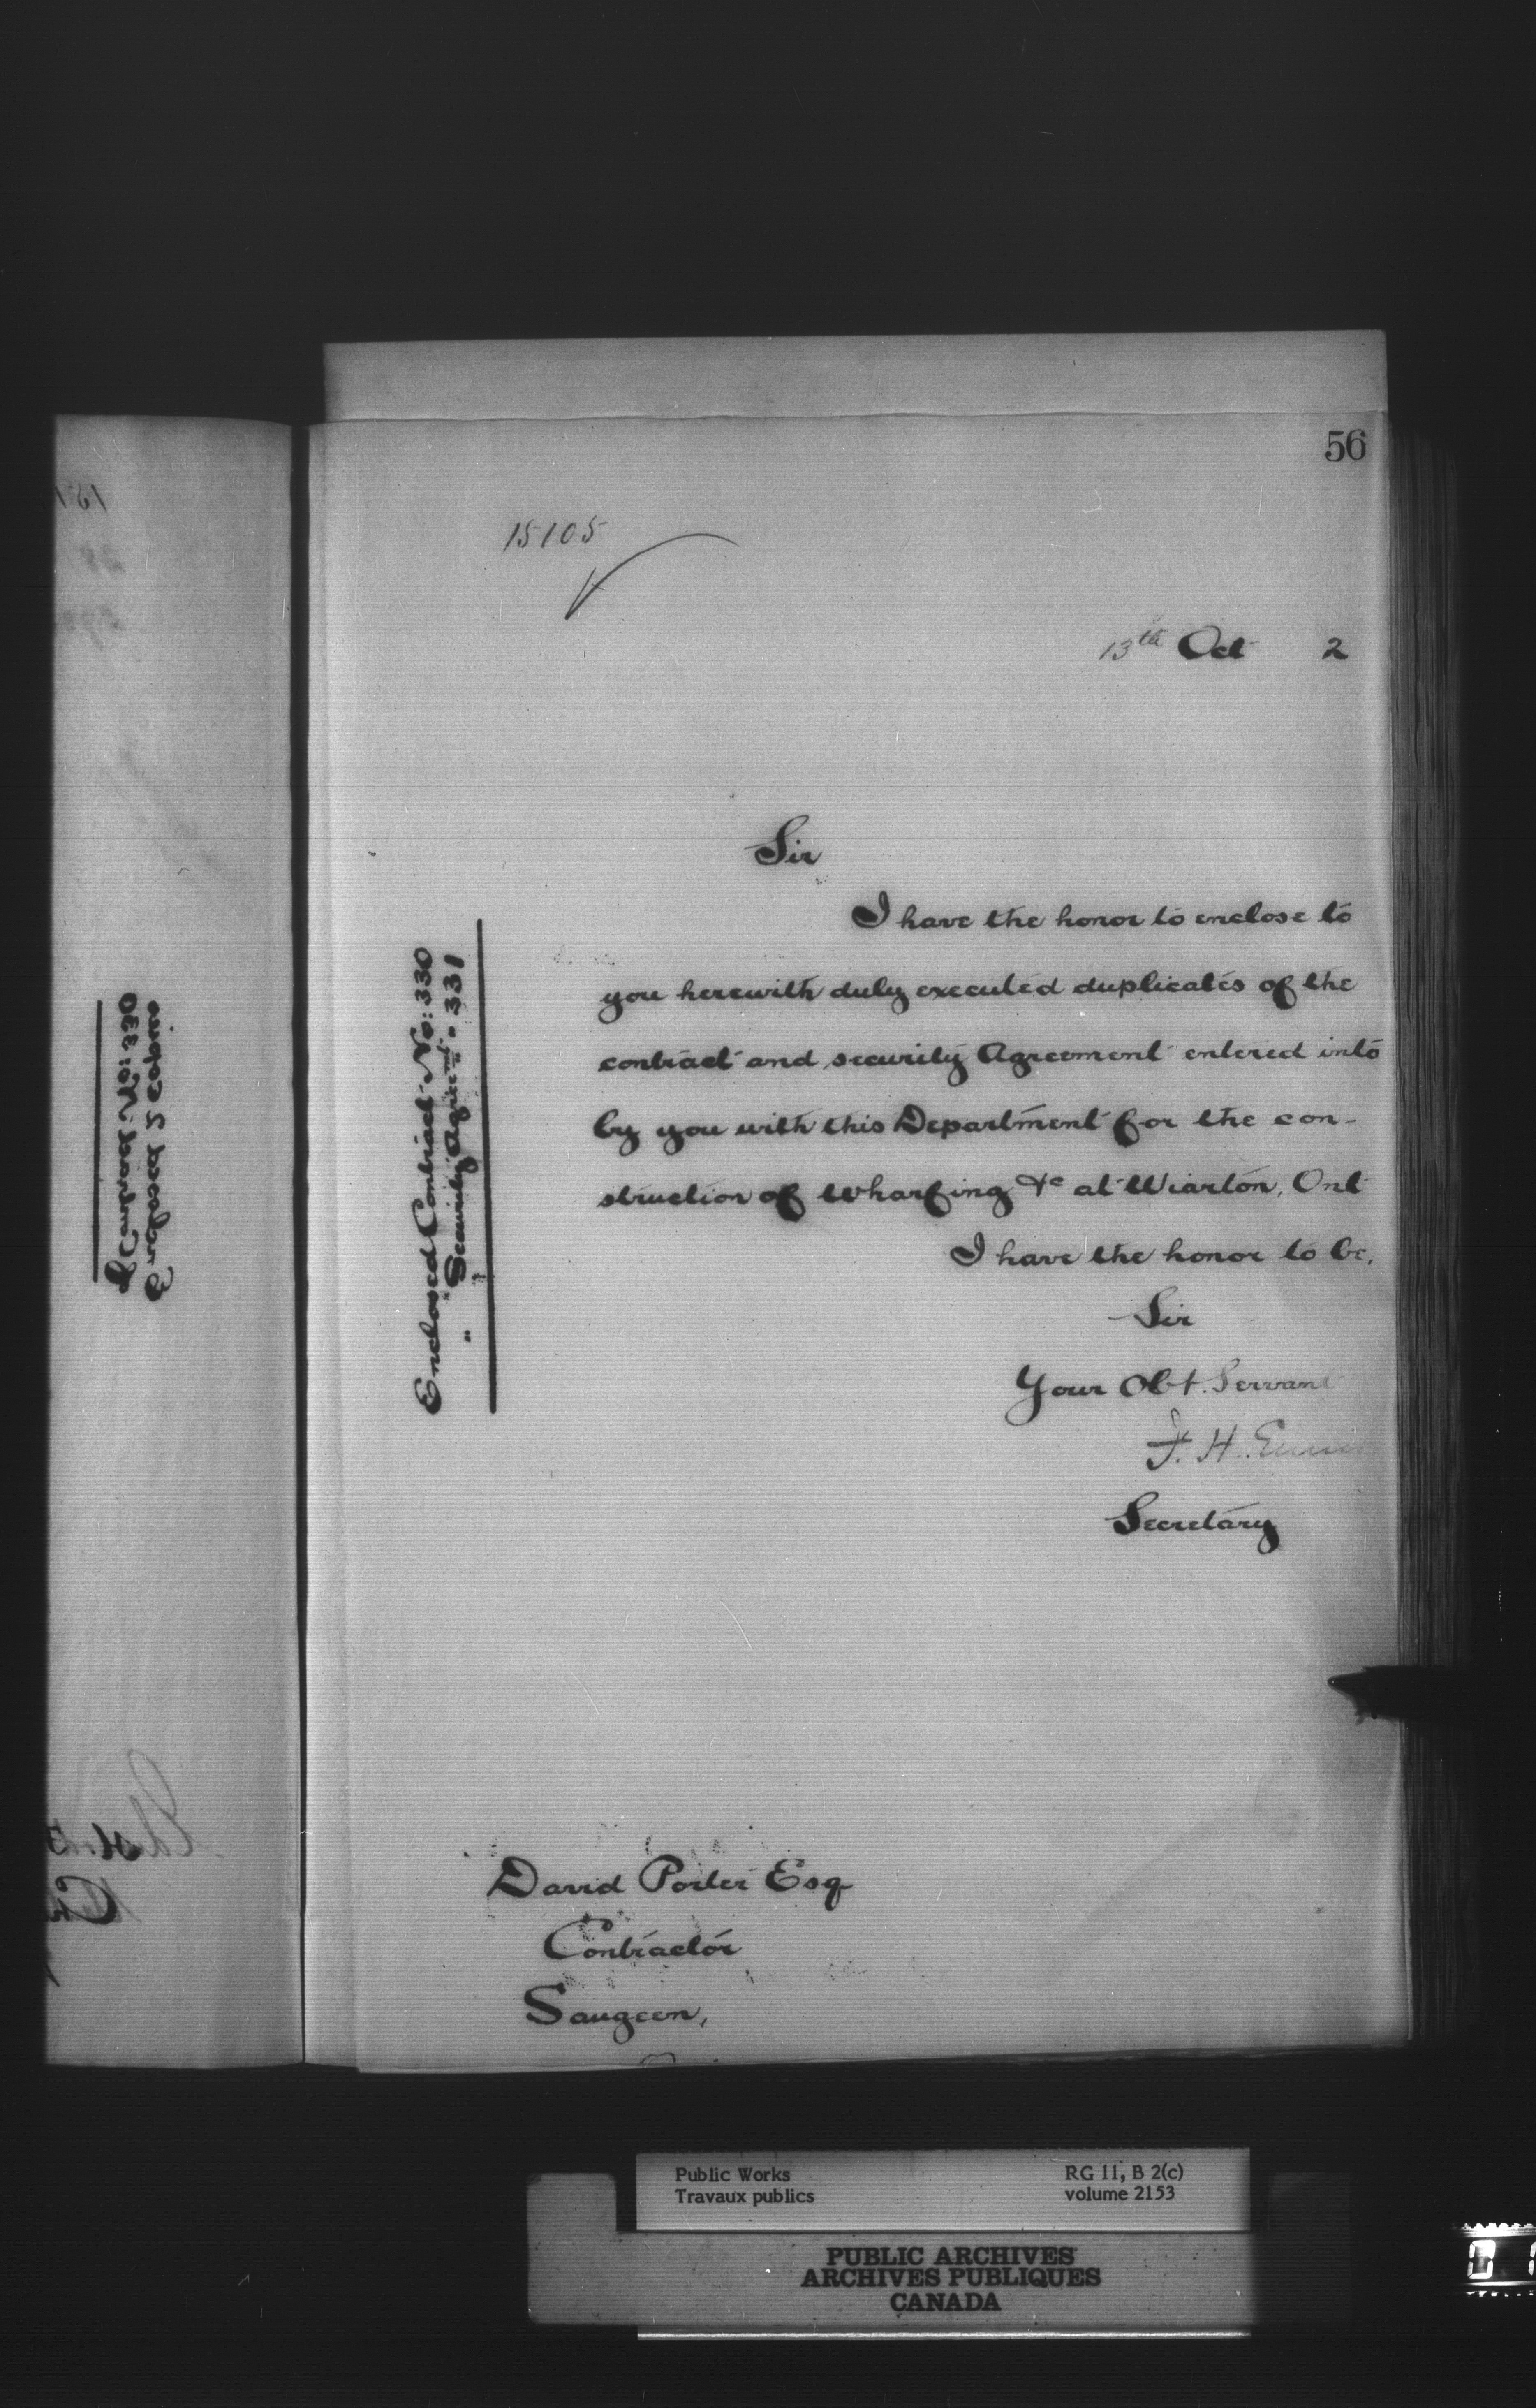 56
15105
13th Oct 2
Sir
I have the honor to enclose to
you herewith duly executed duplicates of the
contract and security Agreement entered into
by you with this Department for the con-
struction of Wharfing &c at Wiarton, Ont
I have the honor to be,
Sir
Your Obt. Servant
F. H. Ennis
Secretary
Enclosed Contract No: 330
" Security Agreemt " 331
David Porter Esq
Contractor
Saugeen,
Enclosed 2 copies
of Contract No: 330
Public Works
Travaux publics
RG 11, B 2(c)
volume 2153
PUBLIC ARCHIVES
ARCHIVES PUBLIQUES
CANADA